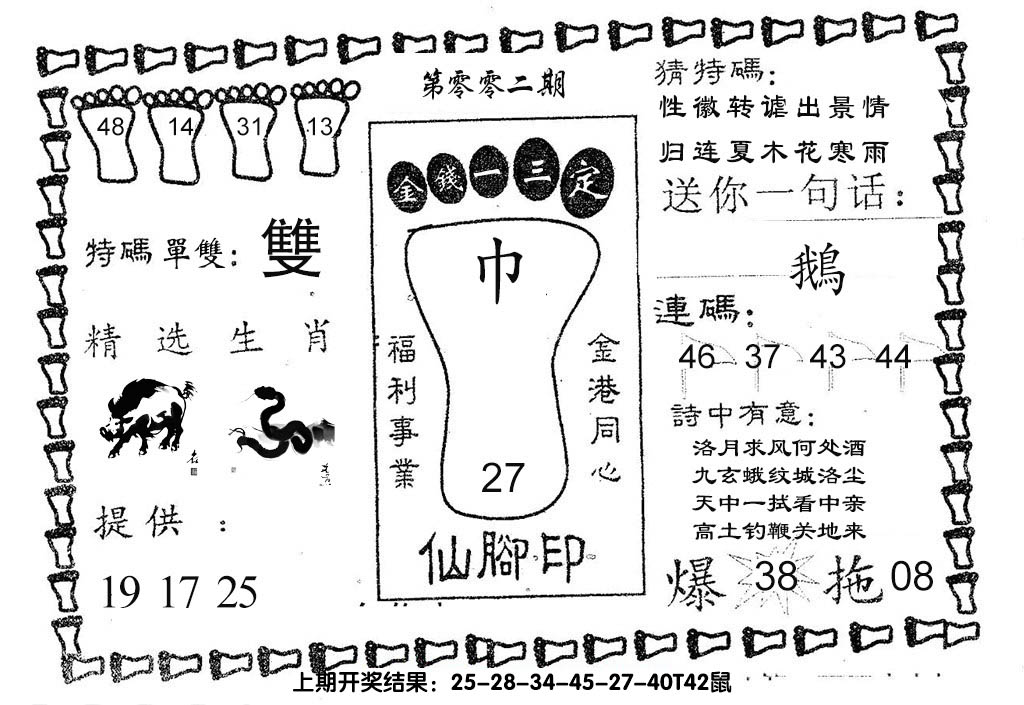 第零零二期
48 14 31 13
特碼單雙：雙
精选生肖
提供：
19 17 25
金錢一三定
巾
福利事業
金港同心
27
仙腳印
猜特碼：
性徽转谑出景情
归连夏木花寒雨
送你一句话：
鵝
連碼：
46 37 43 44
詩中有意：
洛月求风何处酒
九玄蛾纹城洛尘
天中一拭看中亲
高土钓鞭关地来
爆 38 拖 08
上期开奖结果：25-28-34-45-27-40T42鼠